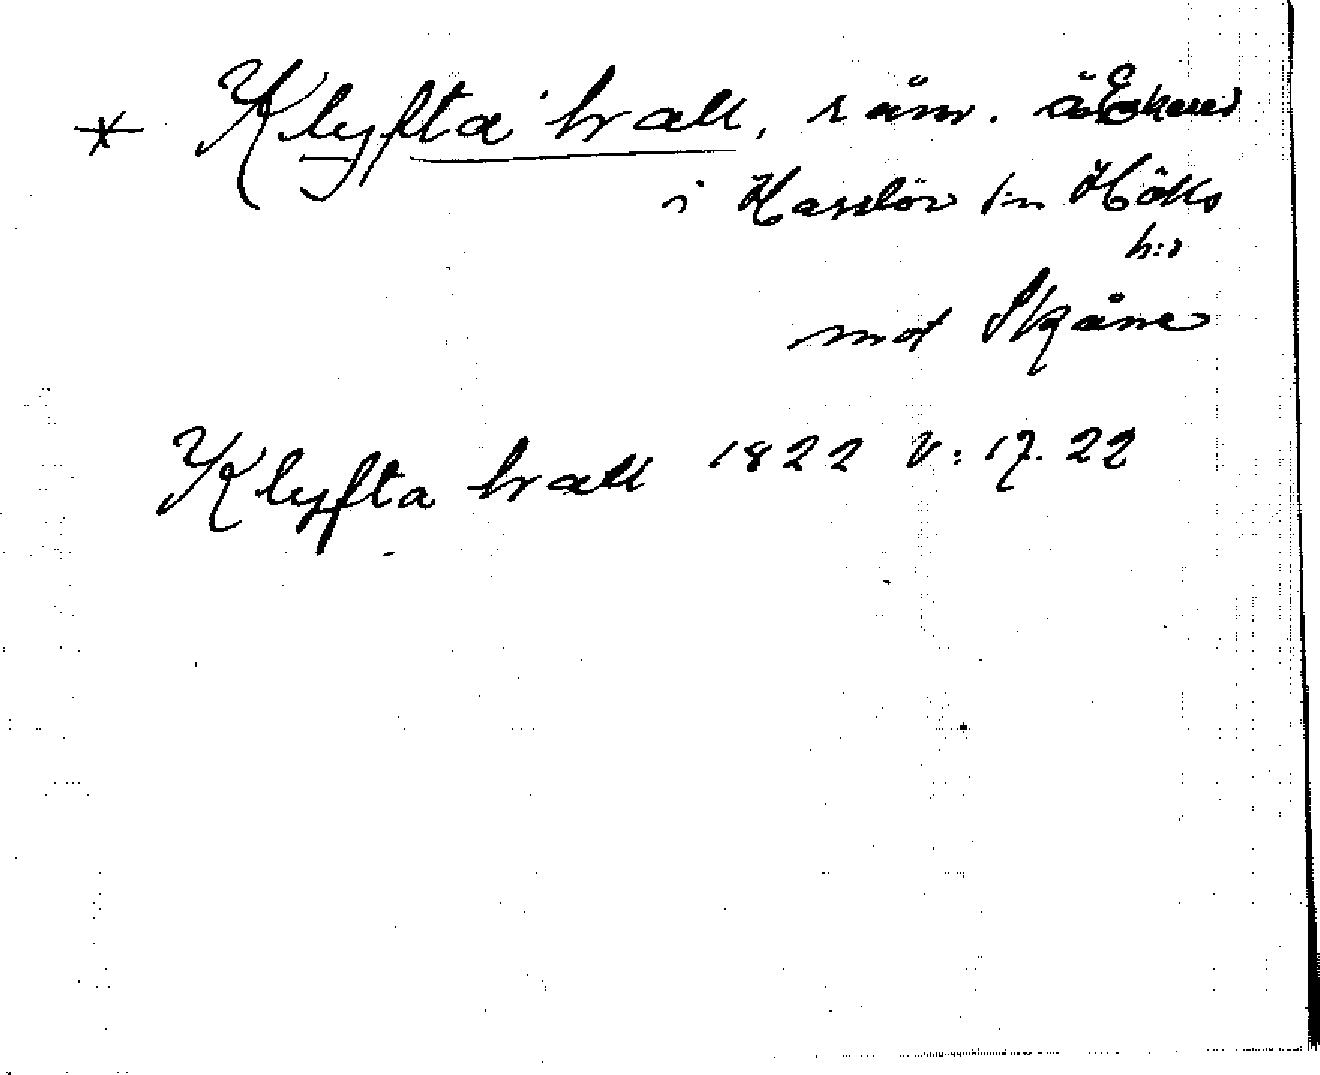 * Klyfta hall, råm. å Ekered
i Hasslöv sn Höks
h:d
mot Skåne
Klyfta hall 1822 V: 17. 22